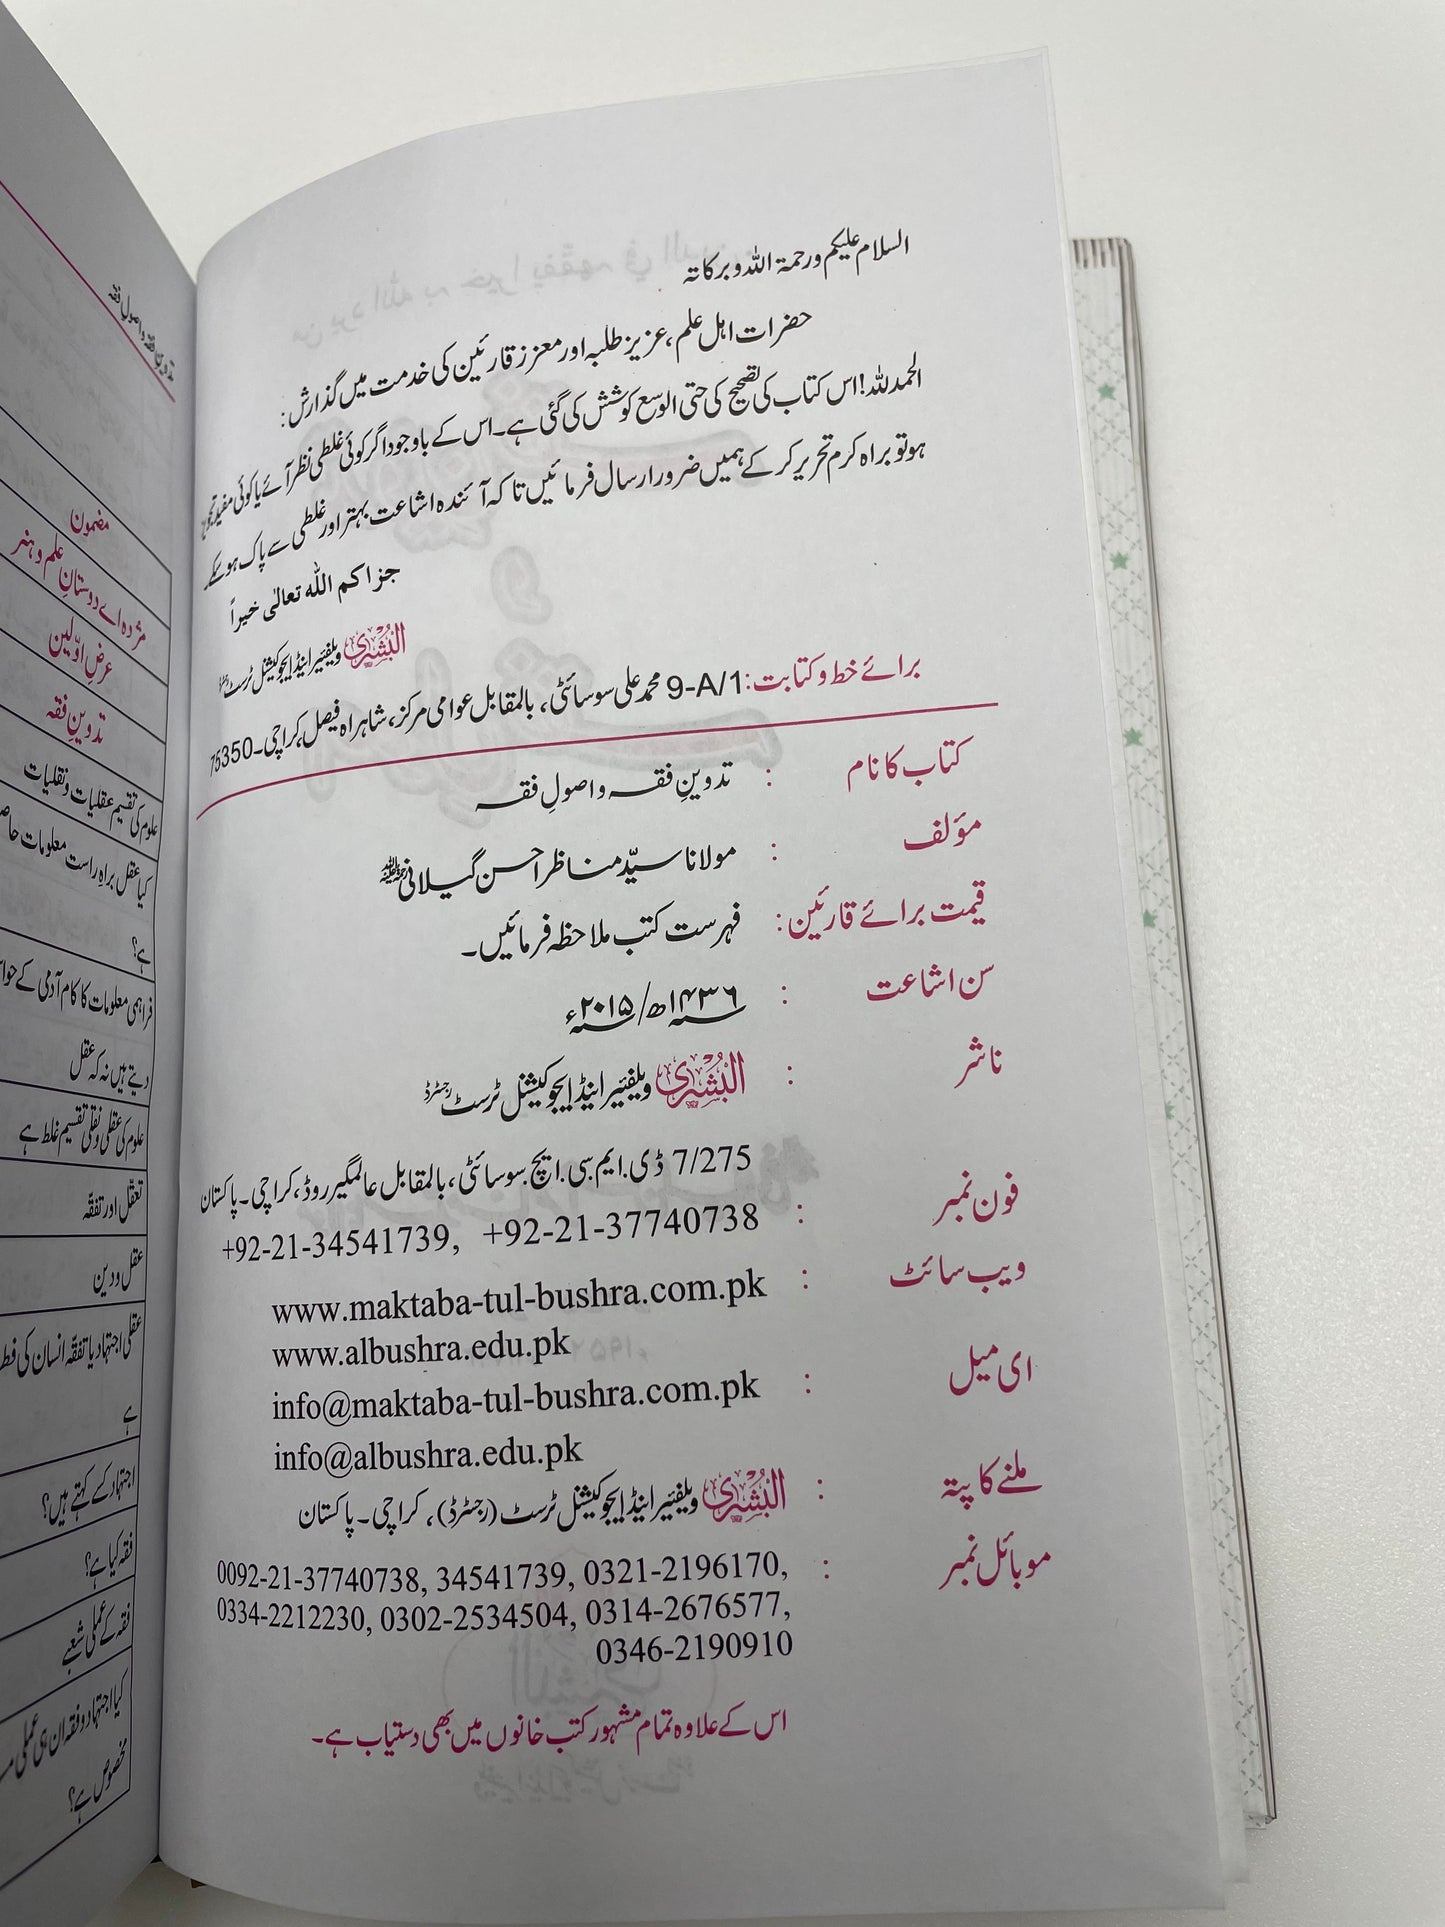 السلام علیکم ورحمۃ اللہ وبرکاتہ
حضرات اہل علم، عزیز طلبہ اور معزز قارئین کی خدمت میں گذارش :
الحمد للہ! اس کتاب کی تصحیح کی حتی الوسع کوشش کی گئی ہے۔ اس کے باوجود اگر کوئی غلطی نظر آئے یا کوئی مفید تجویز
ہو تو براہ کرم تحریر کر کے ہمیں ضرور ارسال فرمائیں تا کہ آئندہ اشاعت بہتر اور غلطی سے پاک ہو سکے۔
جزاکم اللہ تعالٰی خیراً
البُشریٰ ویلفئیر اینڈ ایجوکیشنل ٹرسٹ
برائے خط و کتابت: 9-A/1 محمد علی سوسائٹی، بالمقابل عوامی مرکز، شاہراہ فیصل، کراچی۔ 75350
کتاب کا نام : تدوینِ فقہ و اصولِ فقہ
مؤلف : مولانا سیّد مناظر احسن گیلانی رحمۃ اللہ علیہ
قیمت برائے قارئین : فہرست کتب ملاحظہ فرمائیں۔
سن اشاعت : ۱۴۳۶ھ/ ۲۰۱۵ء
ناشر : البُشریٰ ویلفئیر اینڈ ایجوکیشنل ٹرسٹ رجسٹرڈ
7/275 ڈی.ایم.سی.ایچ.سوسائٹی، بالمقابل عالمگیر روڈ، کراچی۔ پاکستان
فون نمبر : +92-21-34541739, +92-21-37740738
ویب سائٹ : www.maktaba-tul-bushra.com.pk
www.albushra.edu.pk
ای میل : info@maktaba-tul-bushra.com.pk
info@albushra.edu.pk
ملنے کا پتہ : البُشریٰ ویلفئیر اینڈ ایجوکیشنل ٹرسٹ (رجسٹرڈ)، کراچی۔ پاکستان
موبائل نمبر : 0092-21-37740738, 34541739, 0321-2196170,
0334-2212230, 0302-2534504, 0314-2676577,
0346-2190910
اس کے علاوہ تمام مشہور کتب خانوں میں بھی دستیاب ہے۔
تدوینِ فقہ و اصولِ فقہ
مضمون
مژدہ اے دوستانِ علم و ہنر
عرضِ اوّلین
تدوینِ فقہ
علوم کی تقسیم عقلیات و نقلیات
کیا عقل براہِ راست معلومات
ہے؟
فراہمی معلومات کا کام آدمی کے
دیتے ہیں نہ کہ عقل
علوم کی عقلی و نقلی تقسیم غلط ہے
تعقل اور تفقّہ
عقل و دین
عقلی اجتہاد یا تفقّہ انسان کی
ہے
اجتہاد کسے کہتے ہیں؟
فقہ کیا ہے؟
فقہ کے عملی شعبے
کیا اجتہاد و فقہ ان ہی عملی
مخصوص ہے؟